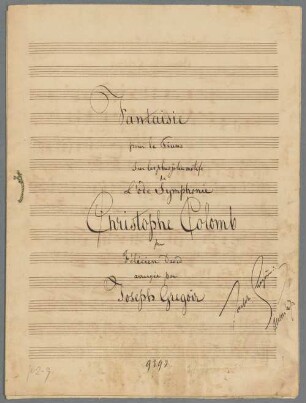 Fantaisie
pour le Piano
sur les plus jolis motifs
de
l'ode Symphonie
Christophe Colomb
de
Félicien David
arrangée par
Joseph Gregoir
9293